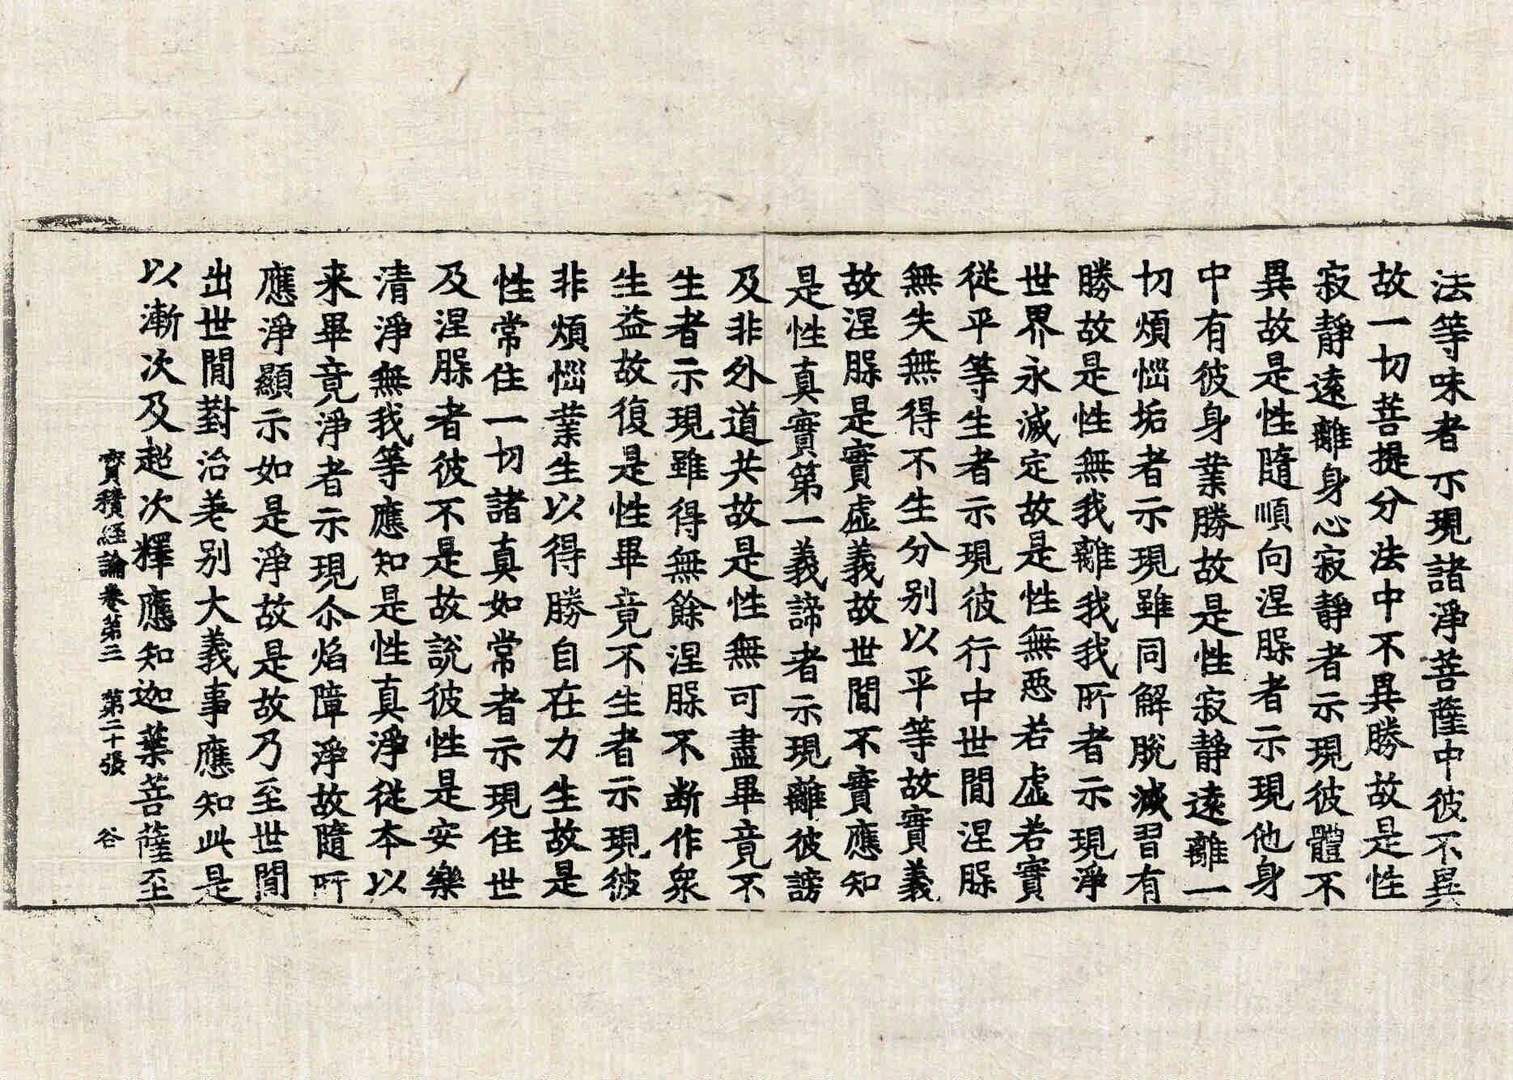 法等味者示現諸淨菩薩中彼不異
故一切菩提分法中不異勝故是性
寂靜遠離身心寂靜者示現彼體不
異故是性隨順向涅槃者示現他身
中有彼身業勝故是性寂靜遠離一
切煩惱垢者示現雖同解脫滅習有
勝故是性無我離我我所者示現淨
世界永滅定故是性無惡若虛若實
從平等生者示現彼行中世間涅槃
無失無得不生分別以平等故實義
故涅槃是實虛義故世間不實應知
是性真實第一義諦者示現離彼謗
及非外道共故是性無可盡畢竟不
生者示現雖得無餘涅槃不断作衆
生益故復是性畢竟不生者示現彼
非煩惱業生以得勝自在力生故是
性常住一切諸真如常者示現住世
及涅槃者彼不是故說彼性是安樂
清淨無我等應知是性真淨從本以
来畢竟淨者示現尒焰障淨故隨所
應淨顯示如是淨故是故乃至世間
出世間對治差别大義事應知此是
以漸次及超次釋應知迦葉菩薩至
寶積經論卷第三　第二十張　谷